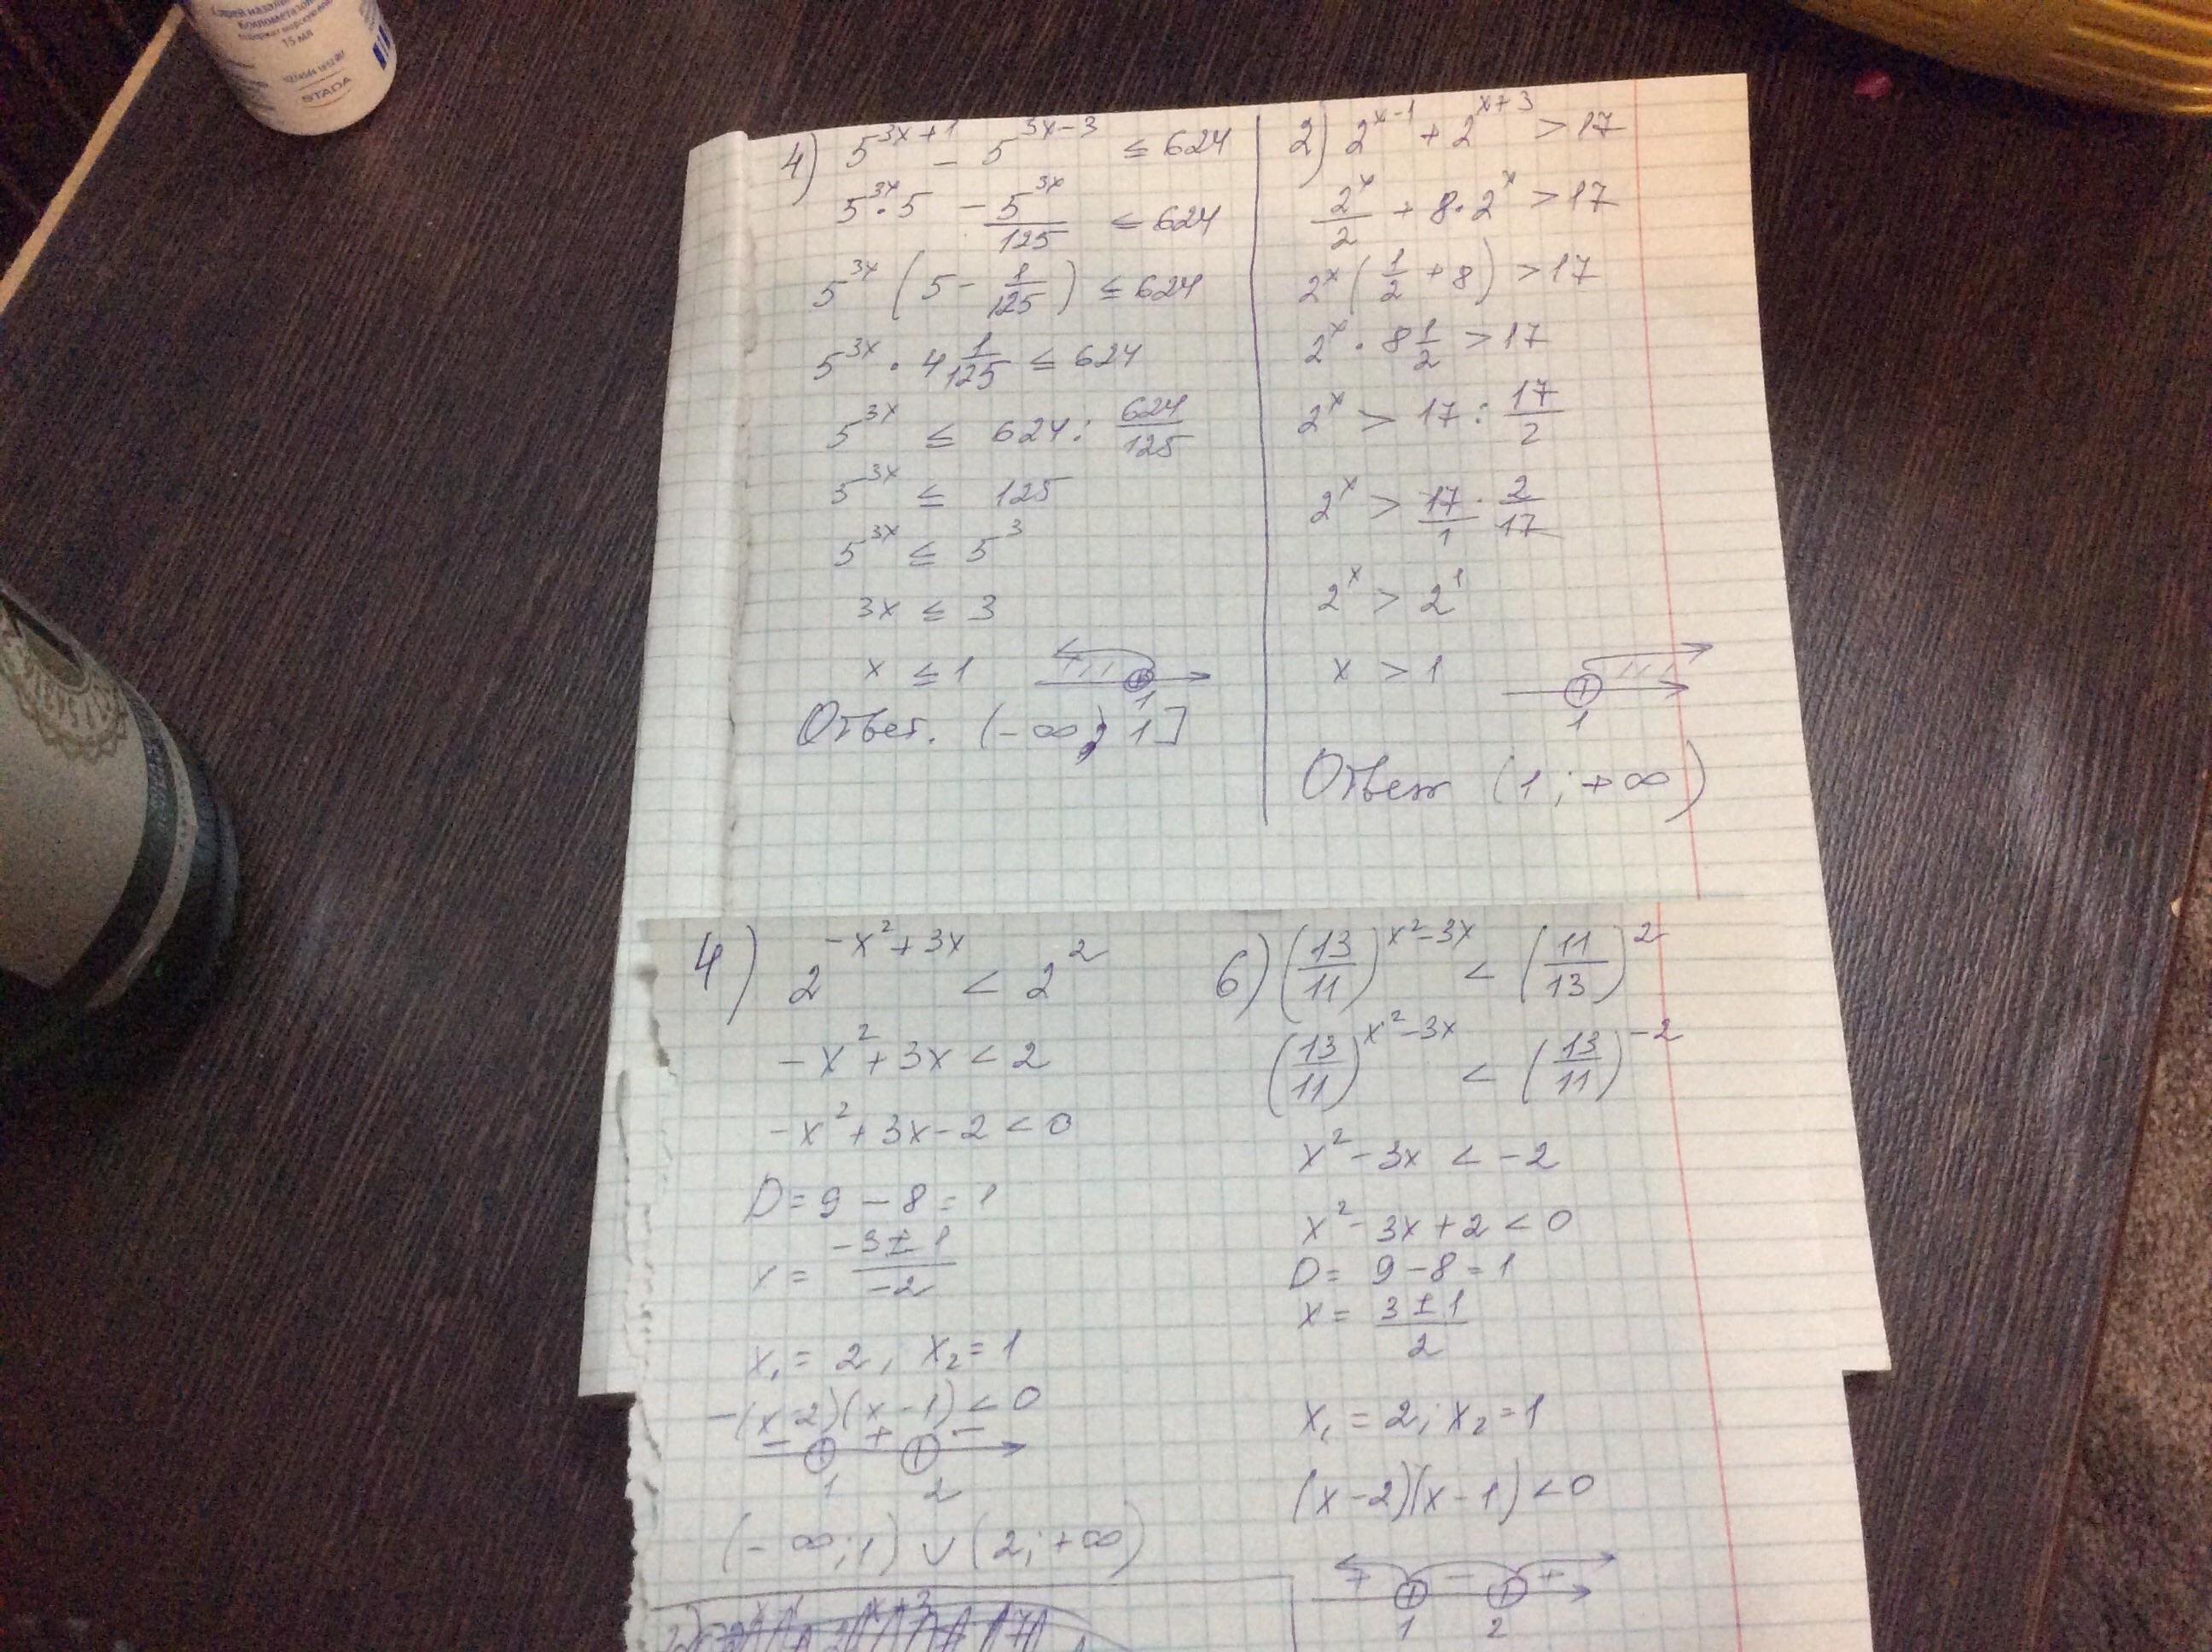 15 мл
STADA
4) 5^{3x+1} - 5^{3x-3} ≤ 624
5^{3x} · 5 - 5^{3x}/125 ≤ 624
5^{3x} (5 - 1/125) ≤ 624
5^{3x} · 4 1/125 ≤ 624
5^{3x} ≤ 624 : 624/125
5^{3x} ≤ 125
5^{3x} ≤ 5^3
3x ≤ 3
x ≤ 1
1
Ответ. (-∞; 1]
2) 2^{x-1} + 2^{x+3} > 17
2^x/2 + 8 · 2^x > 17
2^x (1/2 + 8) > 17
2^x · 8 1/2 > 17
2^x > 17 : 17/2
2^x > 17/1 · 2/17
2^x > 2^1
x > 1
1
Ответ (1; +∞)
4) 2^{-x²+3x} < 2^2
-x² + 3x < 2
-x² + 3x - 2 < 0
D = 9 - 8 = 1
x = (-3 ± 1)/(-2)
x₁ = 2, x₂ = 1
-(x-2)(x-1) < 0
- + -
1 2
(-∞; 1) ∪ (2; +∞)
6) (13/11)^{x²-3x} < (11/13)^2
(13/11)^{x²-3x} < (13/11)^{-2}
x² - 3x < -2
x² - 3x + 2 < 0
D = 9 - 8 = 1
x = (3 ± 1)/2
x₁ = 2; x₂ = 1
(x-2)(x-1) < 0
+ - +
1 2